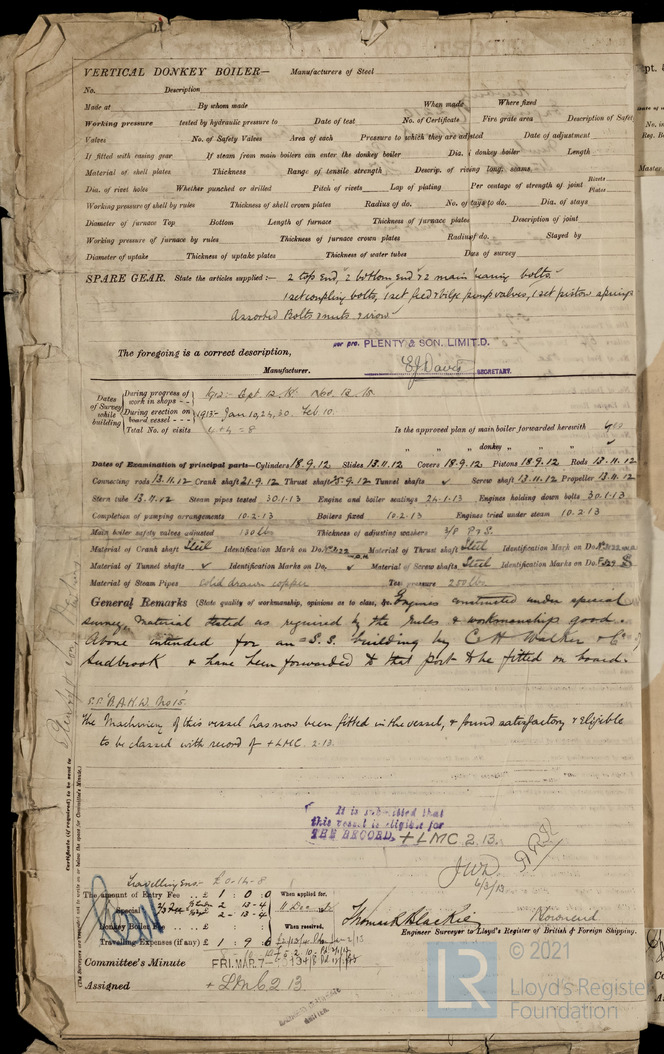 VERTICAL DONKEY BOILER— Manufacturers of Steel
No. Description
Made at By whom made When made Where fixed
Working pressure tested by hydraulic pressure to Date of test No. of Certificate Fire grate area Description of Safety
Valves No. of Safety Valves Area of each Pressure to which they are adjusted Date of adjustment
If fitted with easing gear If steam from main boilers can enter the donkey boiler Dia. of donkey boiler Length
Material of shell plates Thickness Range of tensile strength Descrip. of riveting long. seams
Dia. of rivet holes Whether punched or drilled Pitch of rivets Lap of plating Per centage of strength of joint Rivets Plates
Working pressure of shell by rules Thickness of shell crown plates Radius of do. No. of stays to do. Dia. of stays
Diameter of furnace Top Bottom Length of furnace Thickness of furnace plates Description of joint
Working pressure of furnace by rules Thickness of furnace crown plates Radius of do. Stayed by
Diameter of uptake Thickness of uptake plates Thickness of water tubes Date of survey
SPARE GEAR. State the articles supplied:— 2 top end, 2 bottom end & 2 main bearing bolts
1 set coupling bolts, 1 set feed & bilge pump valves, 1 set piston springs
Assorted Bolts & nuts & iron
The foregoing is a correct description, per pro. PLENTY & SON, LIMITD.
Manufacturer. E.J. Davis SECRETARY.
Dates of Survey while building
During progress of work in shops - - 1912:- Sept 12. 18. Nov. 12. 15.
During erection on board vessel - - - 1913- Jan 10, 24, 30. Feb 10.
Total No. of visits 4 + 4 = 8
Is the approved plan of main boiler forwarded herewith yes
" " " donkey " " "
Dates of Examination of principal parts—Cylinders 18.9.12 Slides 13.11.12 Covers 18.9.12 Pistons 18.9.12 Rods 13.11.12
Connecting rods 13.11.12 Crank shaft 21.9.12 Thrust shaft 25.9.12 Tunnel shafts ✓ Screw shaft 13.11.12 Propeller 13.11.12
Stern tube 13.11.12 Steam pipes tested 30.1.13 Engine and boiler seatings 24.1.13 Engines holding down bolts 30.1.13
Completion of pumping arrangements 10.2.13 Boilers fixed 10.2.13 Engines tried under steam 10.2.13
Main boiler safety valves adjusted 130 lbs Thickness of adjusting washers 3/8 P & S.
Material of Crank shaft Steel Identification Mark on Do. Material of Thrust shaft Steel Identification Mark on Do.
Material of Tunnel shafts ✓ Identification Marks on Do. ✓ Material of Screw shafts Steel Identification Marks on Do.
Material of Steam Pipes solid drawn copper Test pressure 250 lbs
General Remarks (State quality of workmanship, opinions as to class, &c. Engines constructed under special
survey, material tested as required by the Rules & workmanship good.
Above intended for an S.S. building by C H Walker & Co of
Sudbrook & have been forwarded to that port to be fitted on board.
S.S. "B.A.N.W. No 15"
The Machinery of this vessel has now been fitted in the vessel, & found satisfactory & eligible
to be classed with record of + LMC. 2.13.
Certificate (if required) to be sent to
(The Surveyors are requested not to write on or below the space for Committee's Minute.)
It is submitted that
this vessel is eligible for
THE RECORD. + LMC 2.13.
JWD
6/3/13
Travelling Exs:- £0-14-8
The amount of Entry Fee .. £ 1 : 0 : 0 When applied for,
Special .. £ 2 - 13 - 4 11 Dec
Donkey Boiler Fee .. £ When received,
Travelling Expenses (if any) £ 1 : 9 : 6
Thomas R Blackie
Engineer Surveyor to Lloyd's Register of British & Foreign Shipping.
Committee's Minute FRI. MAR. 7 - 1913
Assigned + LMC 2 13
© 2021
Lloyd's Register
Foundation
LR